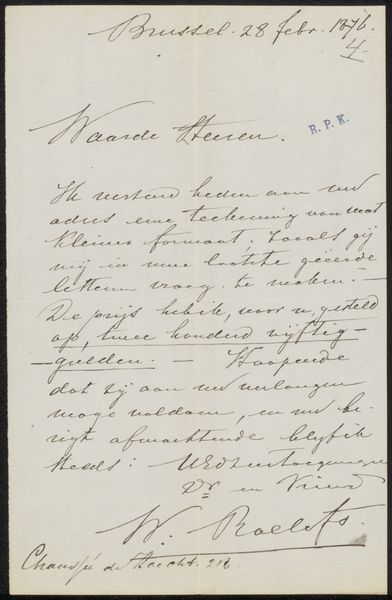 Brussel. 28 febr. 1876.
4
Waarde Heeren.
R.P.K.
Ik verzend heden aan uw
adres eene teekening van wat
kleiner formaat, zooals gij
mij in uwe laatste geëerde
letteren vroeg te maken. —
De prijs heb ik, voor u, gesteld
op, twee honderd vijftig—
—gulden. — Hoopende
dat zij aan uw verlangen
moge voldoen, en uw be-
rigt afwachtende blijf ik
steeds: UEd toegenegen
Dr en Vriend
W. Roelofs.
Chaussée de Haecht. 218